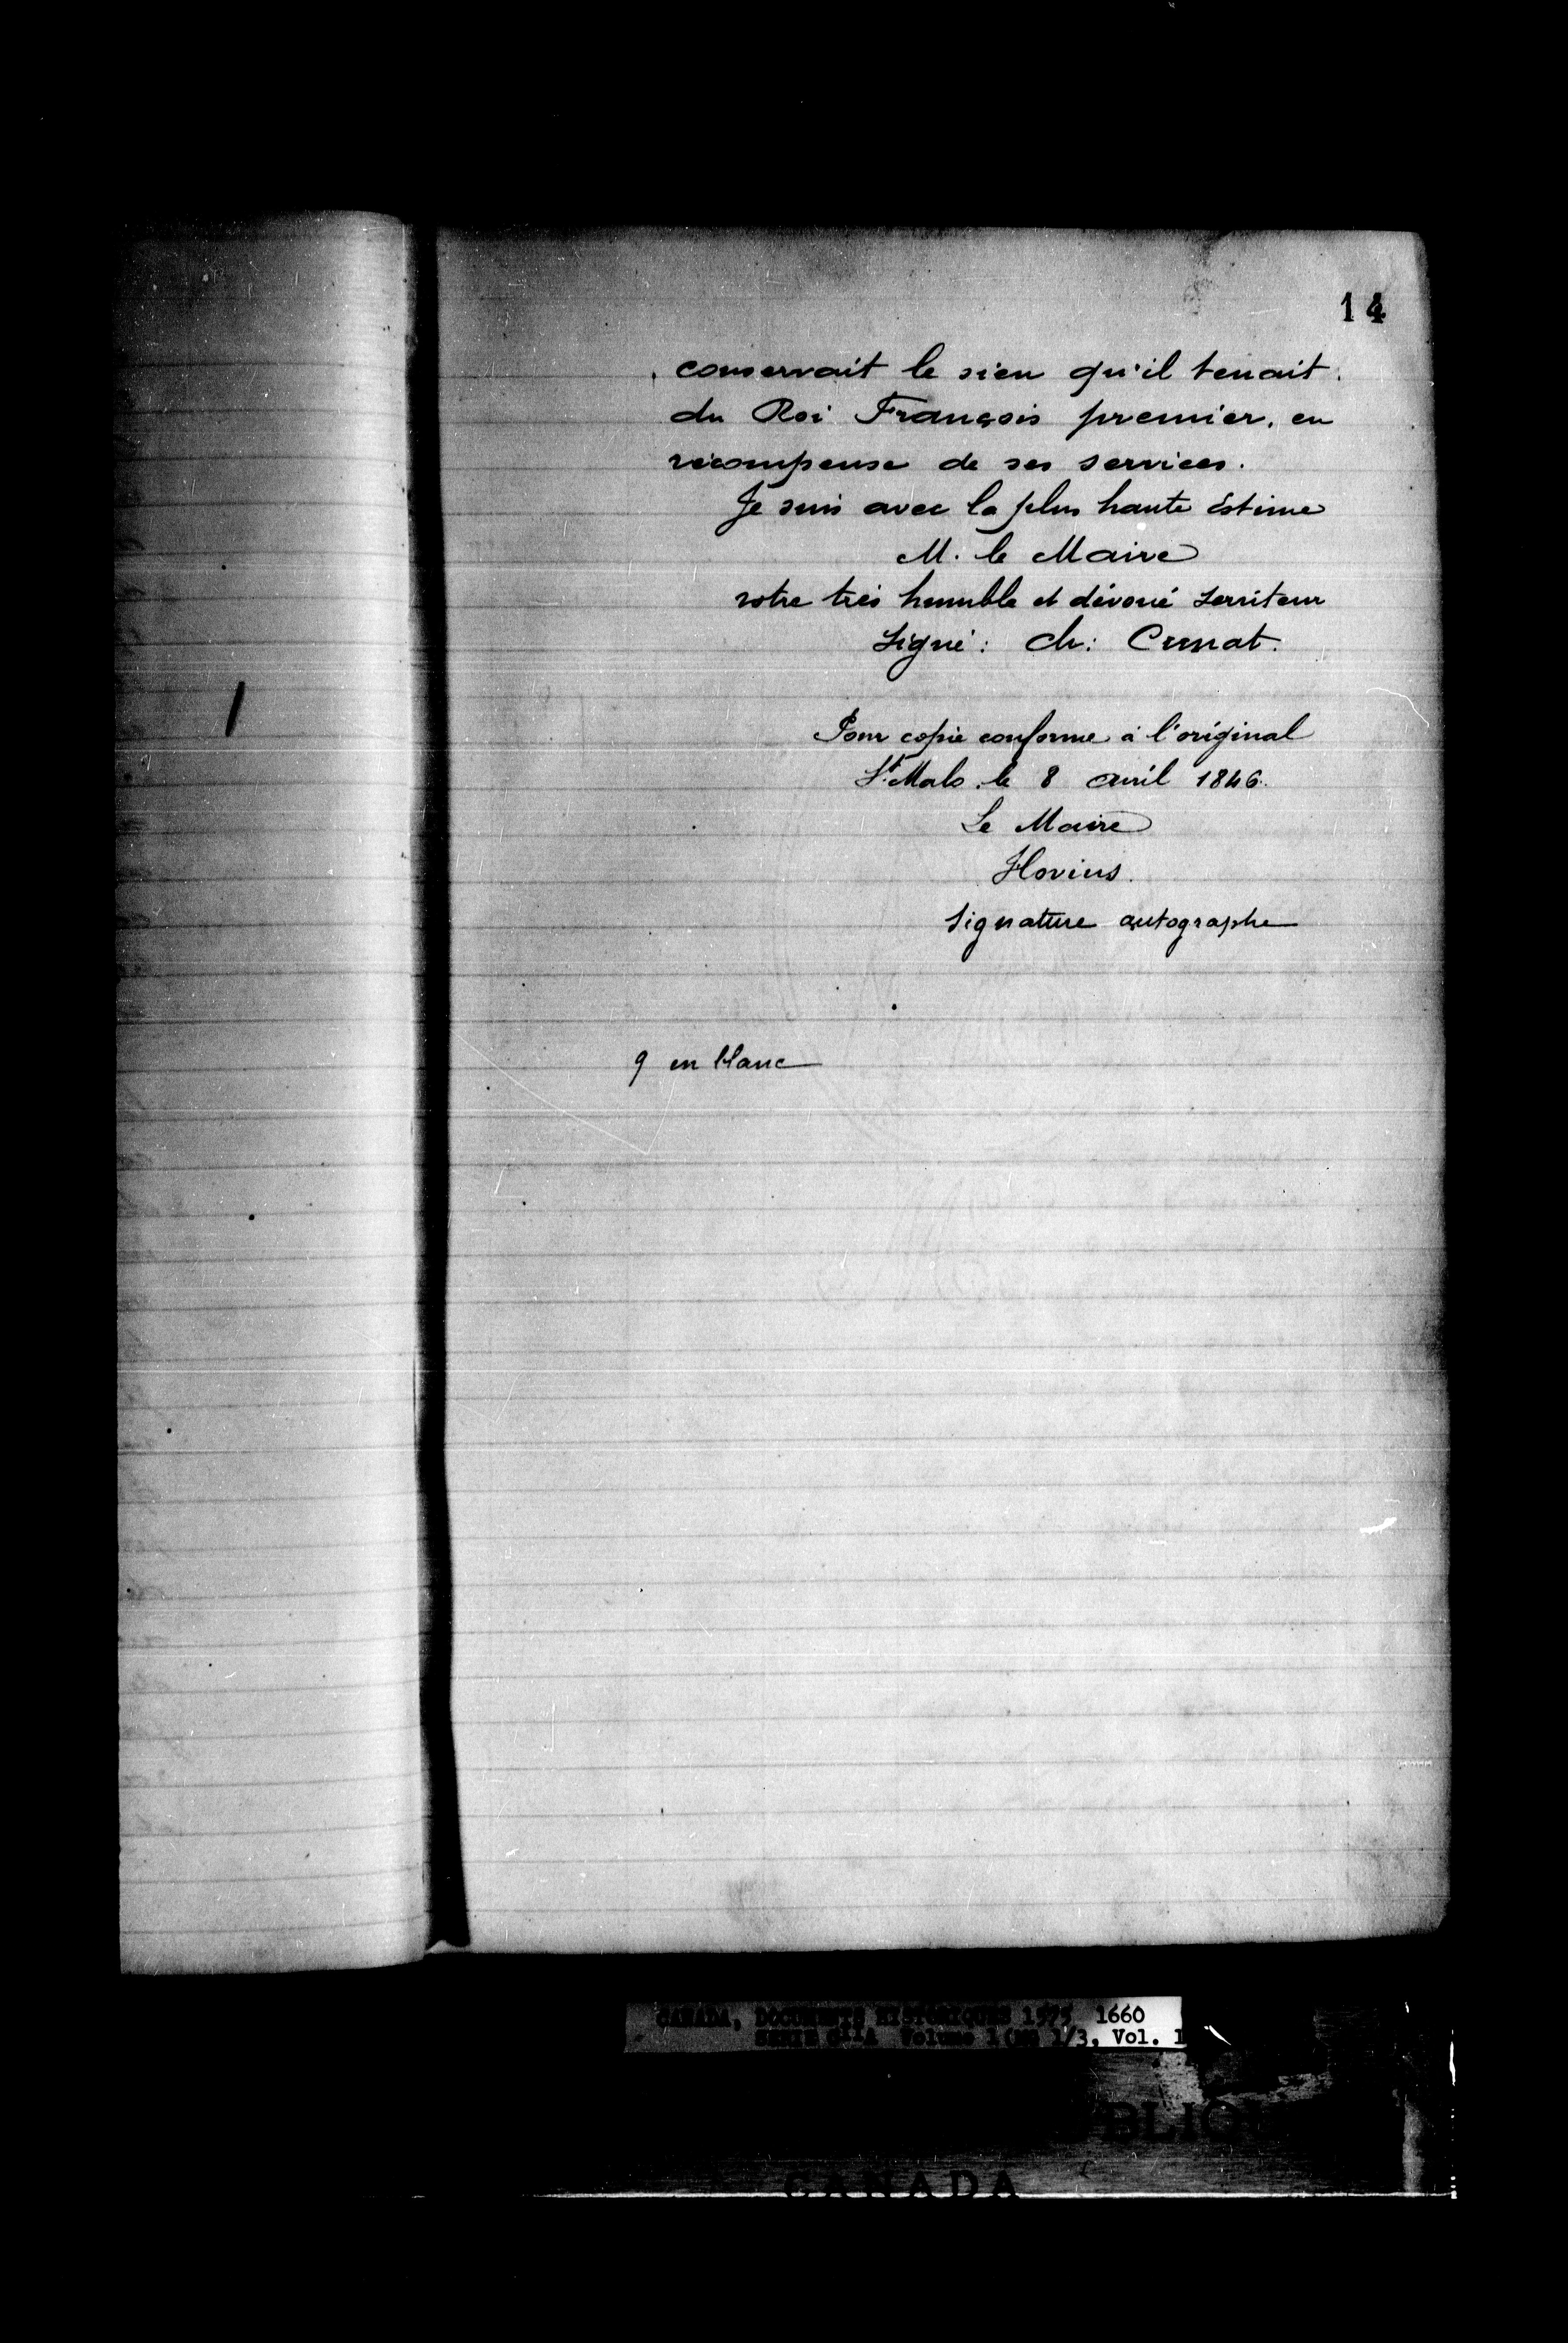 14
conservait le sien qu'il tenait
du Roi François premier, en
récompense de ses services.
Je suis avec la plus haute Estime
M. le Maire
votre très humble et dévoué serviteur
Signé : Ch: Cunat.
Pour copie conforme à l'original
St. Malo, le 8 avril 1846.
Le Maire
Hovius.
Signature autographe
9 en blanc
CANADA, DOCUMENTS HISTORIQUES 1575 1660
SERIE C11A Volume 1 (MG 1/3, Vol. 1
BLIQU
CANADA